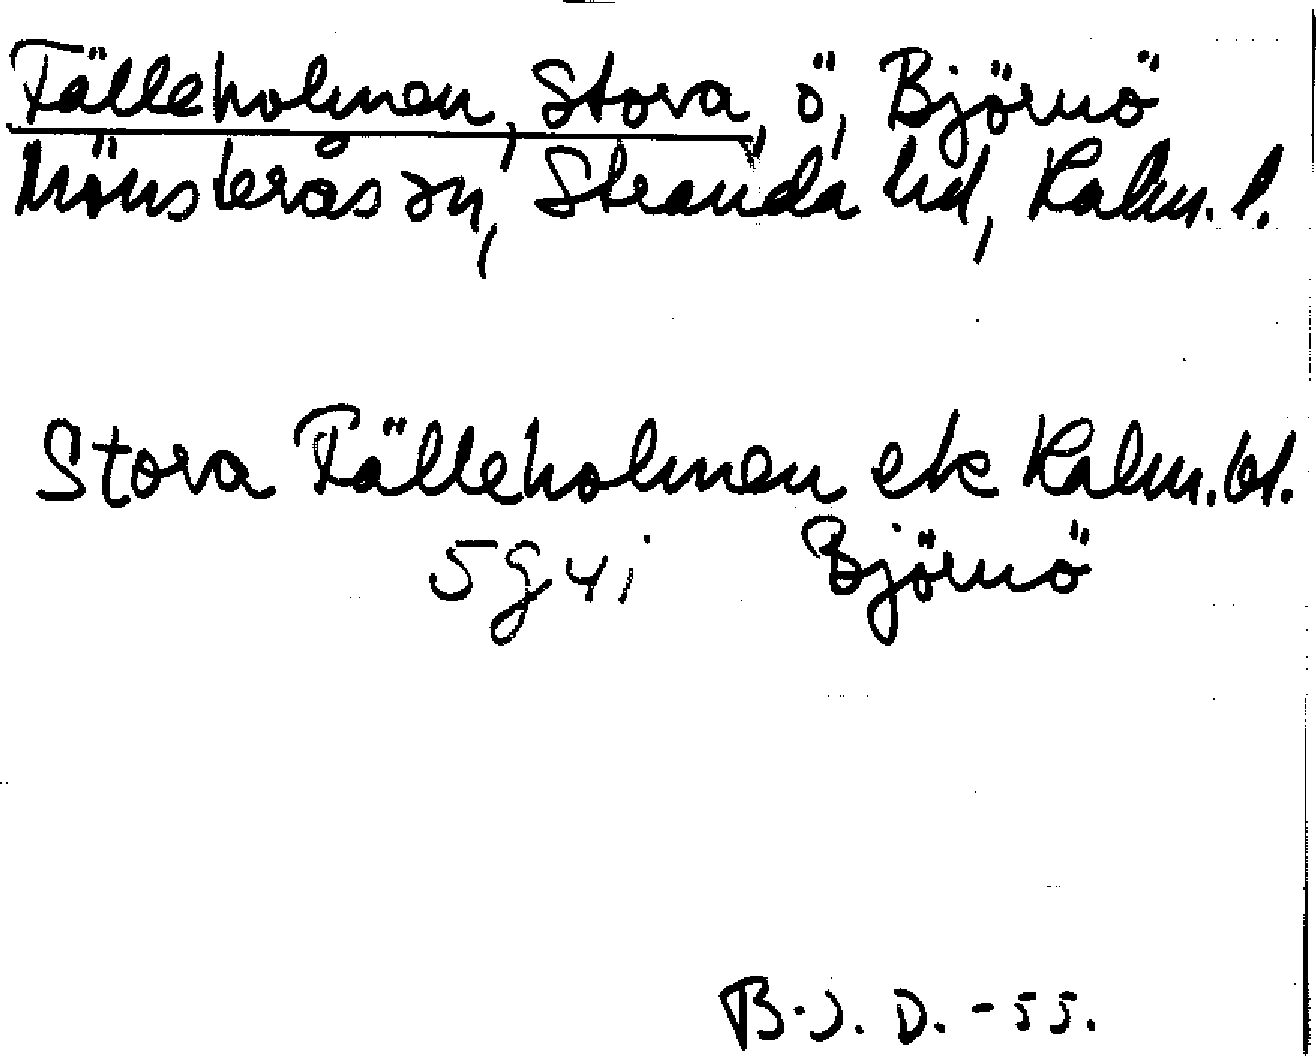 Fälleholmen, Stora, ö, Björnö
Mönsterås sn, Stranda hd, Kalm. l.
Stora Fälleholmen ek Kalm. bl.
5g4i Björnö
B.J.D. -55.